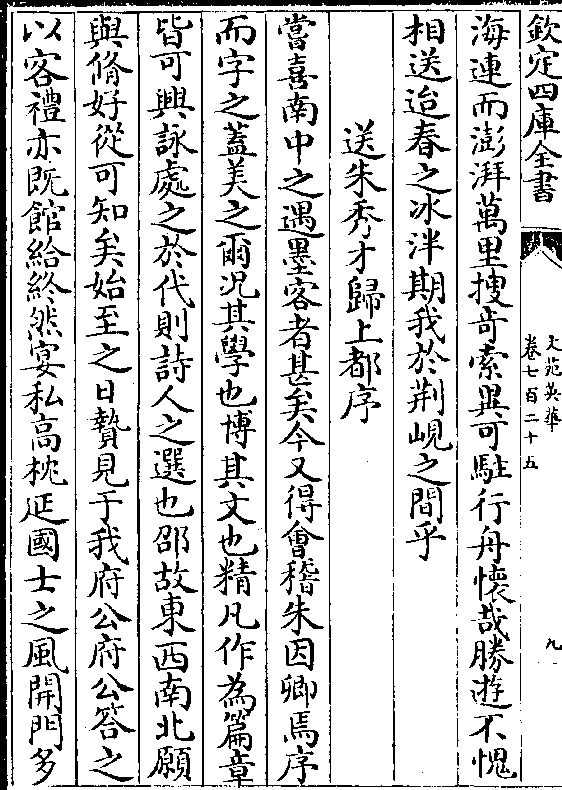 欽定四庫全書
文苑英華
卷七百二十五
九
海連而澎湃萬里搜奇索異可駐行舟懷哉勝遊不愧
相送迨春之冰泮期我於荆峴之間乎
送朱秀才歸上都序
嘗喜南中之遇墨客者甚矣今又得會稽朱因卿焉序
而字之蓋美之爾况其學也博其文也精凡作為篇章
皆可興詠處之於代則詩人之選也邵故東西南北願
與脩好從可知矣始至之日贄見于我府公府公答之
以客禮亦既館給終然宴私高枕延國士之風開門多